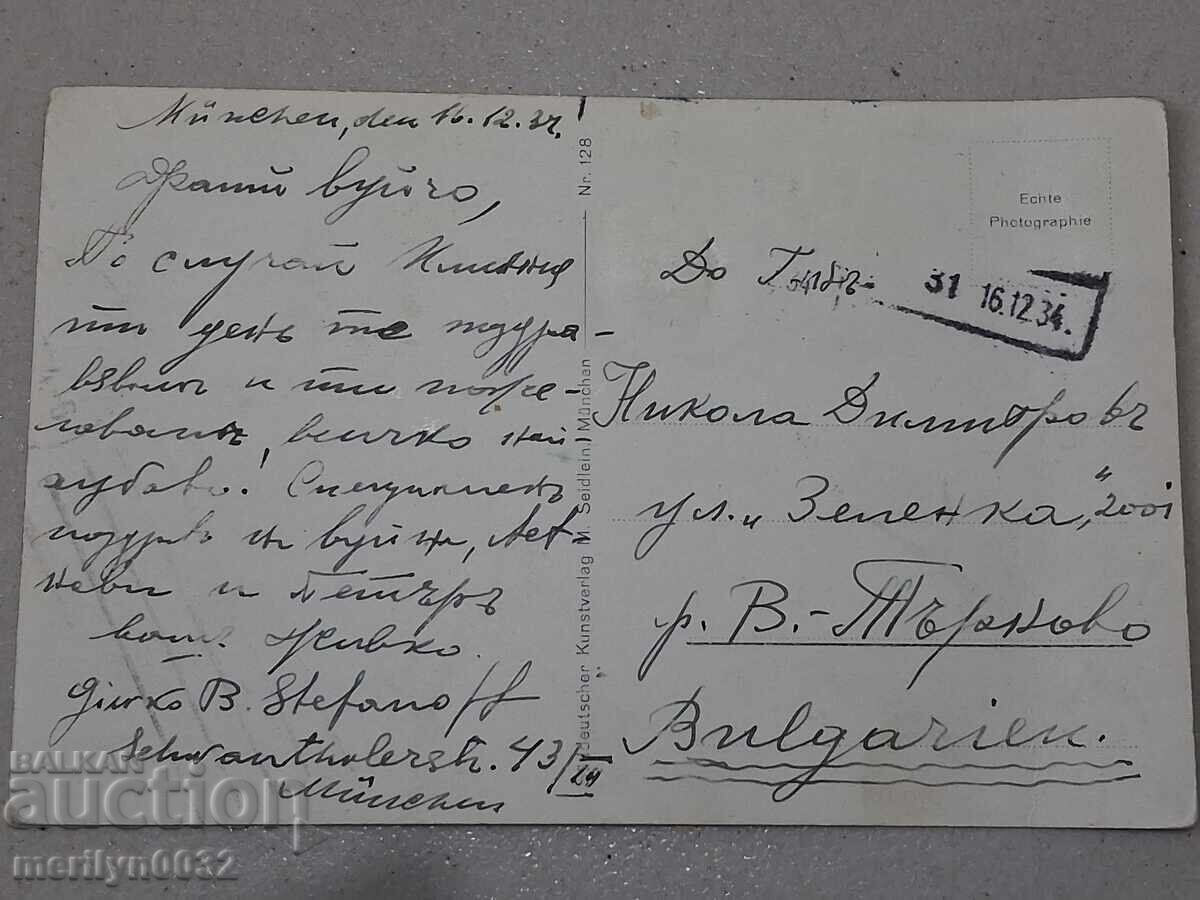 München, den 16.12.34.
Драгий вуйчо,
По случай Имения
ти день те поздра-
вявамъ и ти поже-
лавамъ всичко най
хубаво! Специаленъ
поздравъ на вуйна,
и Петъръ
вашъ Живко.
Givko B. Stefanoff
Schwanthalerstr. 43/
München
Nr. 128
deutscher Kunstverlag M. Seidlein, München
Echte
Photographie
31 16.12.34.
До
Никола Димитровъ
ул. „Зеленка“, 2001
гр. В.-Търново
Bulgarien.
BALKAN
auction
merilyn0032